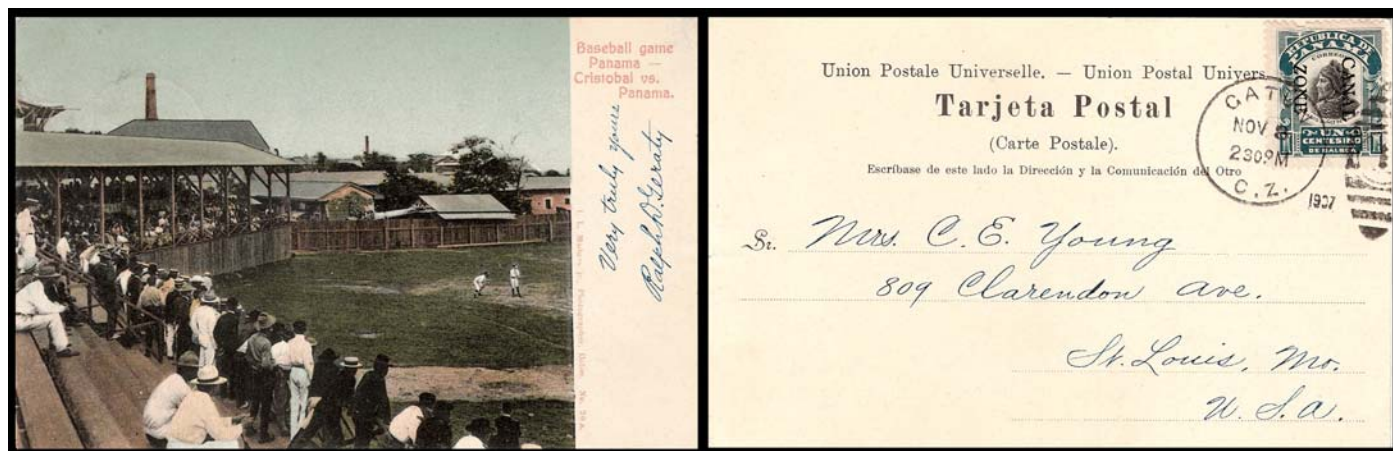 Baseball game
Panama —
Cristobal vs.
Panama.
Very truly yours
Ralph D. Geraty
I. L. Maduro jr., Photographer, No.
Union Postale Universelle. — Union Postal Univers
Tarjeta Postal
(Carte Postale).
Escríbase de este lado la Dirección y la Comunicación del Otro
REPUBLICA DE
PANAMA
CORREOS
CANAL
ZONE
UN
CENTESIMO
DE BALBOA
GAT
NOV
230PM
C.Z.
1907
Sr. Mrs. C. E. Young
809 Clarendon Ave.
St. Louis, Mo.
U. S. A.